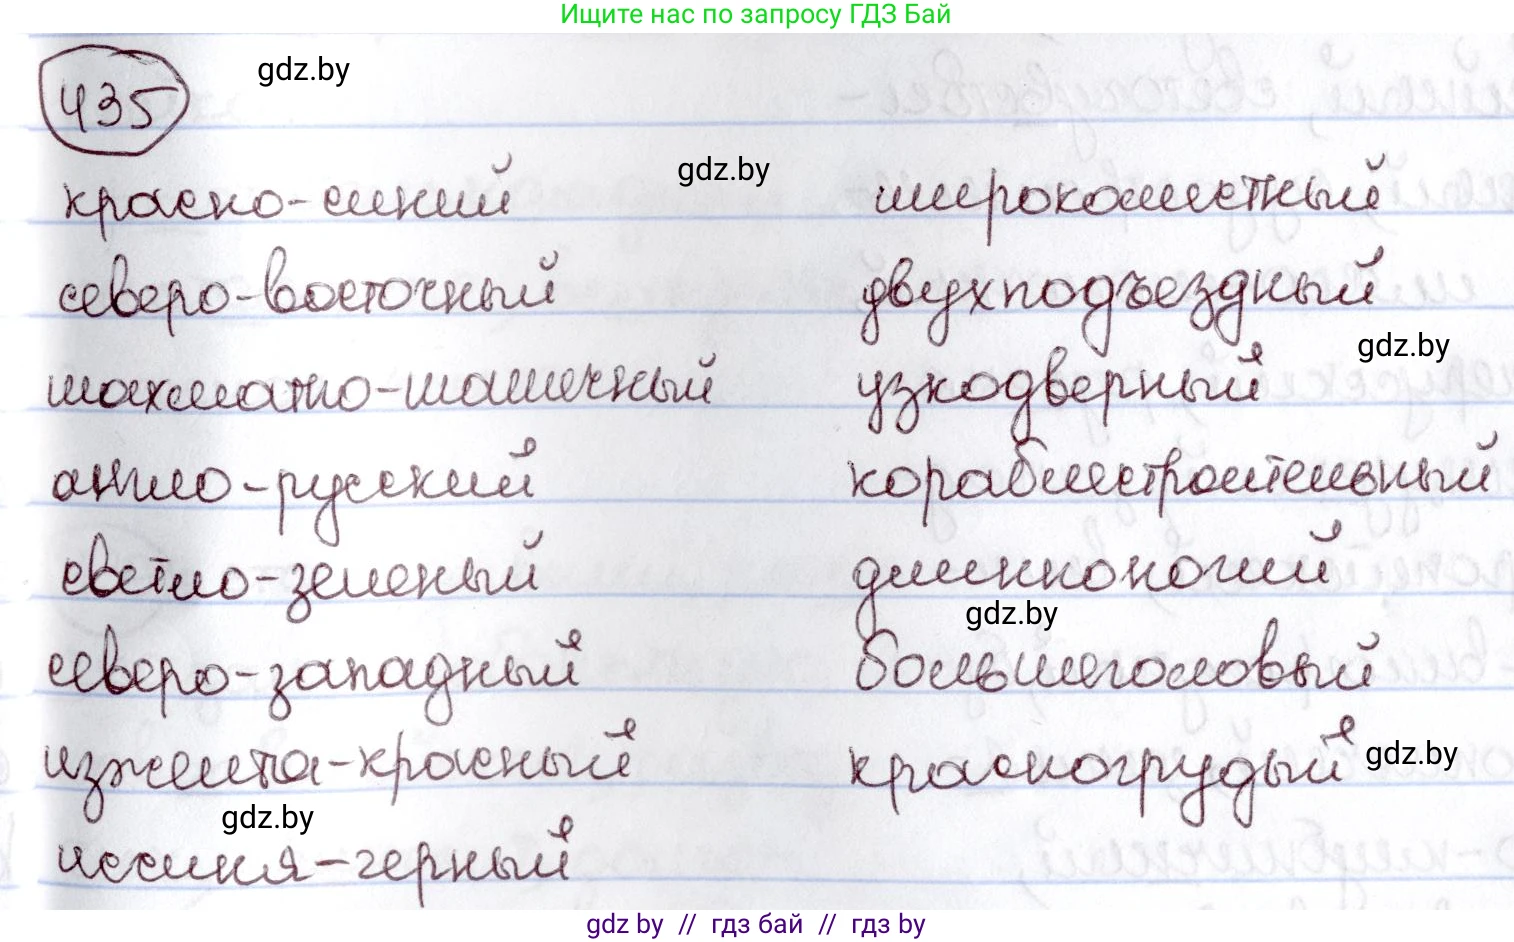 Ищите нас по запросу ГДЗ Бай
435
gdz.by
gdz.by
красно-синий
широколистный
северо-восточный
двухподъездный
gdz.by
шахматно-шашечный
узкодверный
англо-русский
кораблестроительный
светло-зеленый
длинноногий
gdz.by
северо-западный
большеголовый
изжелта-красный
красногрудый
gdz.by
gdz.by
иссиня-черный
gdz by // гдз бай // гдз by